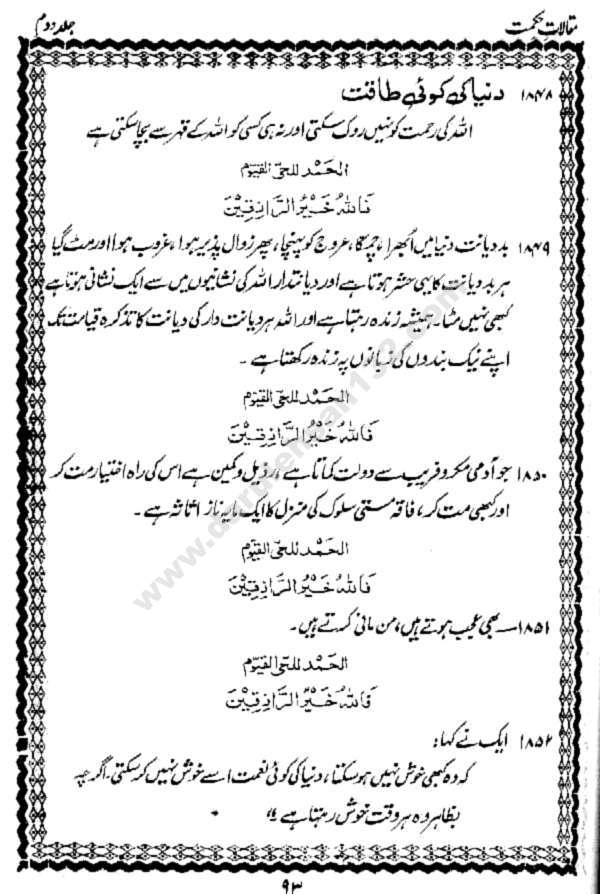 مقالاتِ حکمت
جلد دوم
۱۸۴۸ دنیا کی کوئی طاقت
اللہ کی رحمت کو نہیں روک سکتی اور نہ ہی کسی کو اللہ کے قہر سے بچا سکتی ہے
الحمد للحی القیوم
فَاللّٰہُ خَیْرُ الرَّازِقِیْنَ
۱۸۴۹ بد دیانت دنیا میں اُبھرا، چمکا، عروج کو پہنچا، پھر زوال پذیر ہوا، غروب ہوا اور مٹ گیا
ہر بد دیانت کا یہی حشر ہوتا ہے اور دیانتدار اللہ کی نشانیوں میں سے ایک نشانی ہوتا ہے
کبھی نہیں مٹتا۔ ہمیشہ زندہ رہتا ہے اور اللہ ہر دیانت دار کی دیانت کا تذکرہ قیامت تک
اپنے نیک بندوں کی زبانوں پہ زندہ رکھتا ہے ۔
الحمد للحی القیوم
فَاللّٰہُ خَیْرُ الرَّازِقِیْنَ
۱۸۵۰ جو آدمی مکر و فریب سے دولت کماتا ہے، رذیل و کمین ہے اس کی راہ اختیار مت کر
اور کبھی مت کر، فاقہ مستی سلوک کی منزل کا ایک مایہ ناز اثاثہ ہے ۔
الحمد للحی القیوم
فَاللّٰہُ خَیْرُ الرَّازِقِیْنَ
۱۸۵۱ــ بھی عجیب ہوتے ہیں، من مانی کرتے ہیں۔
الحمد للحی القیوم
فَاللّٰہُ خَیْرُ الرَّازِقِیْنَ
۱۸۵۲ ایک نے کہا:
کہ وہ کبھی خوش نہیں ہو سکتا، دنیا کی کوئی نعمت اسے خوش نہیں کر سکتی۔ اگرچہ
بظاہر وہ ہر وقت خوش رہتا ہے
۹۳